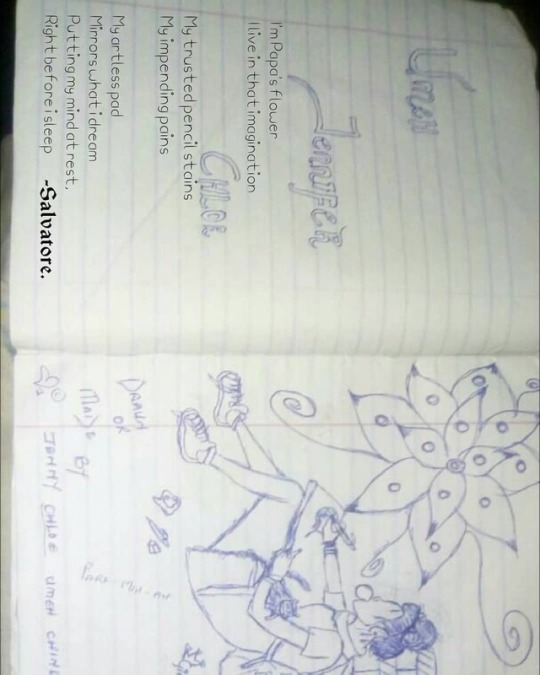 Umeh
JENNIFER
CHLOE
I'm Papa's flower
I live in that imagination
My trusted pencil stains
My impending pains
My artless pad
Mirrors what i dream
Putting my mind at rest,
Right before i sleep
-Salvatore.
DRAWN
OR
Made BY
JENNY CHLOE UMEH